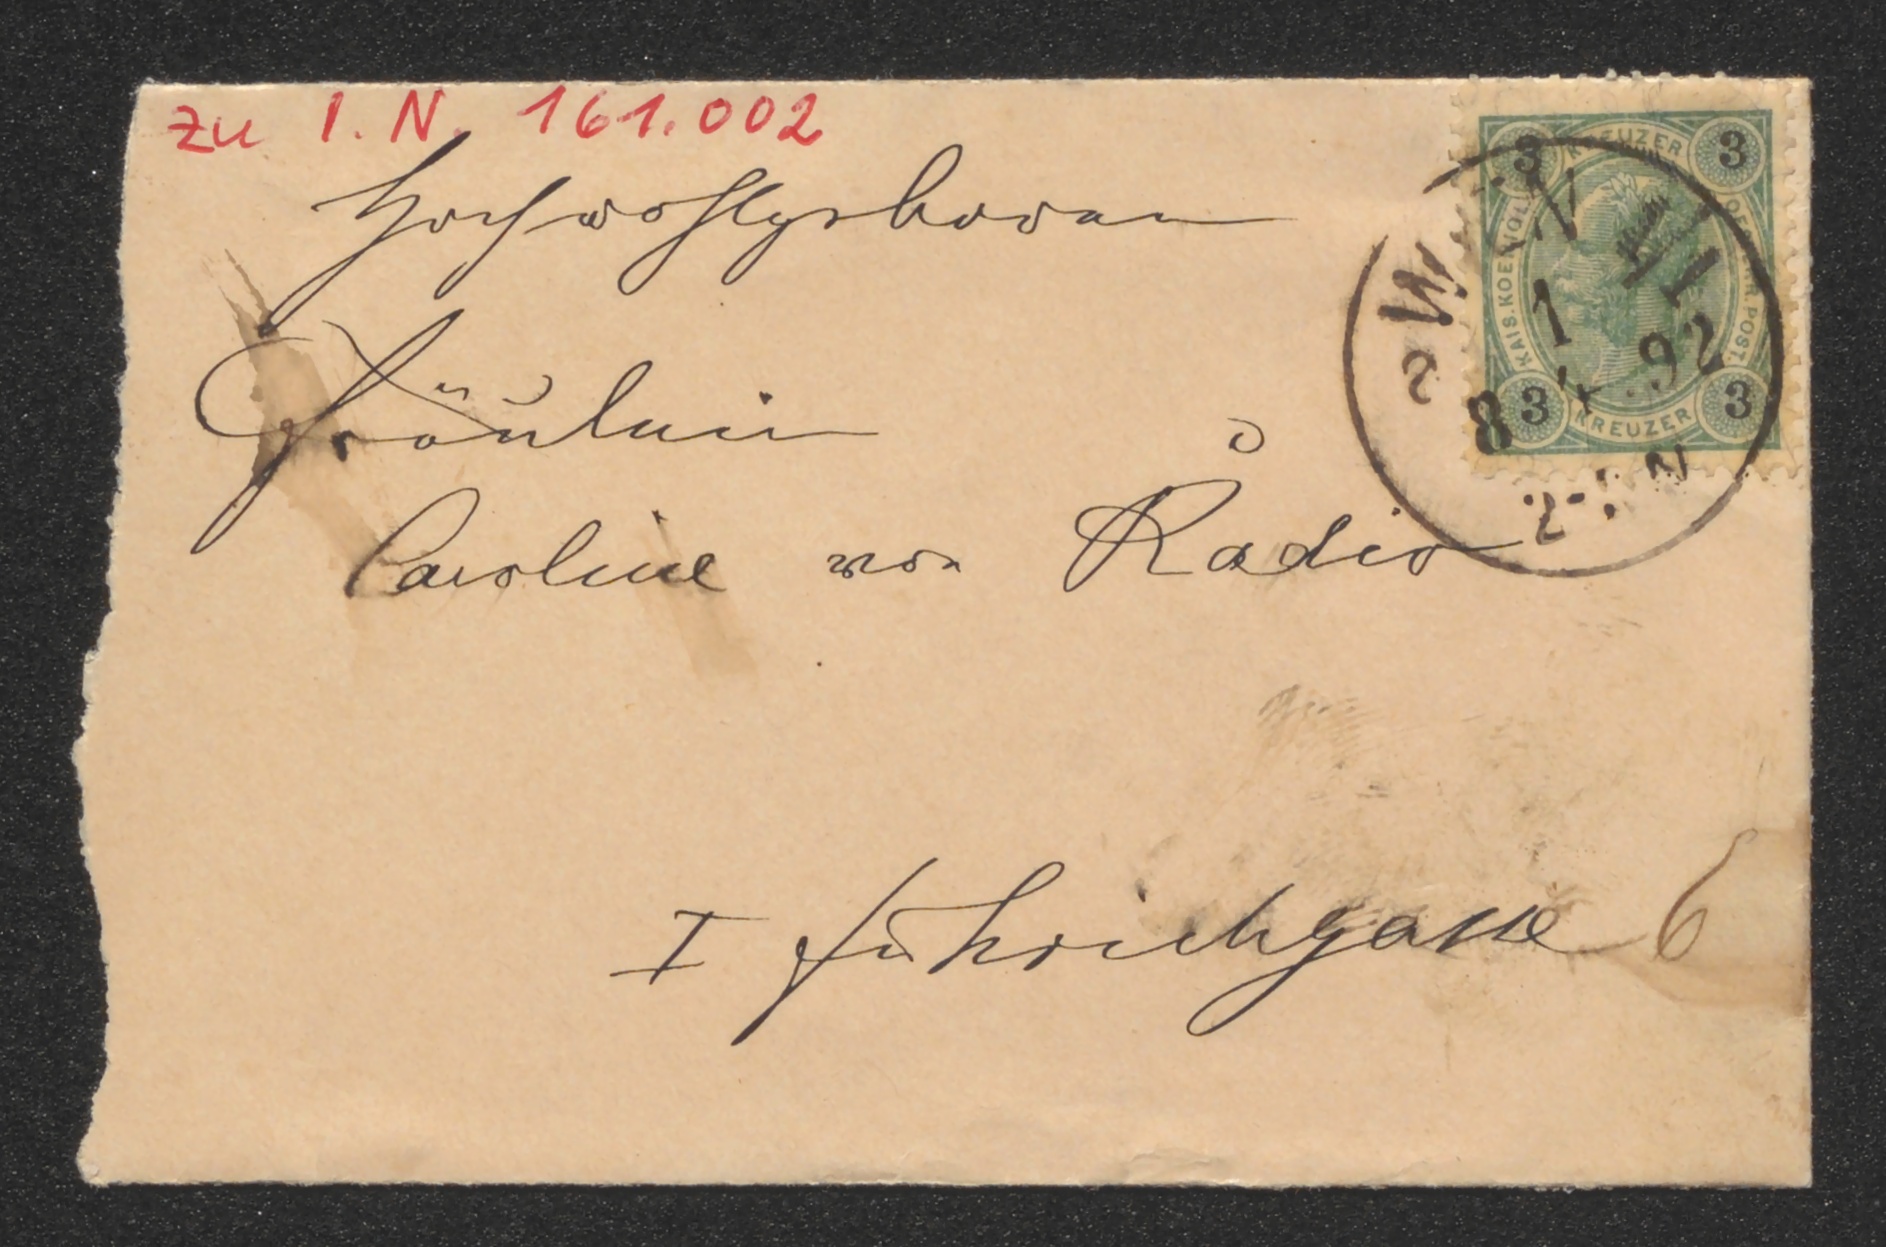 zu I. N. 161.002
Hochwohlgeboren
Fräulein
Caroline von Radio
I Führichgasse 6
3 KREUZER 3
KAIS. KOENIGL. OESTERR. POST.
3 KREUZER 3
WIEN 1/1
1 4 92
8
2-3N